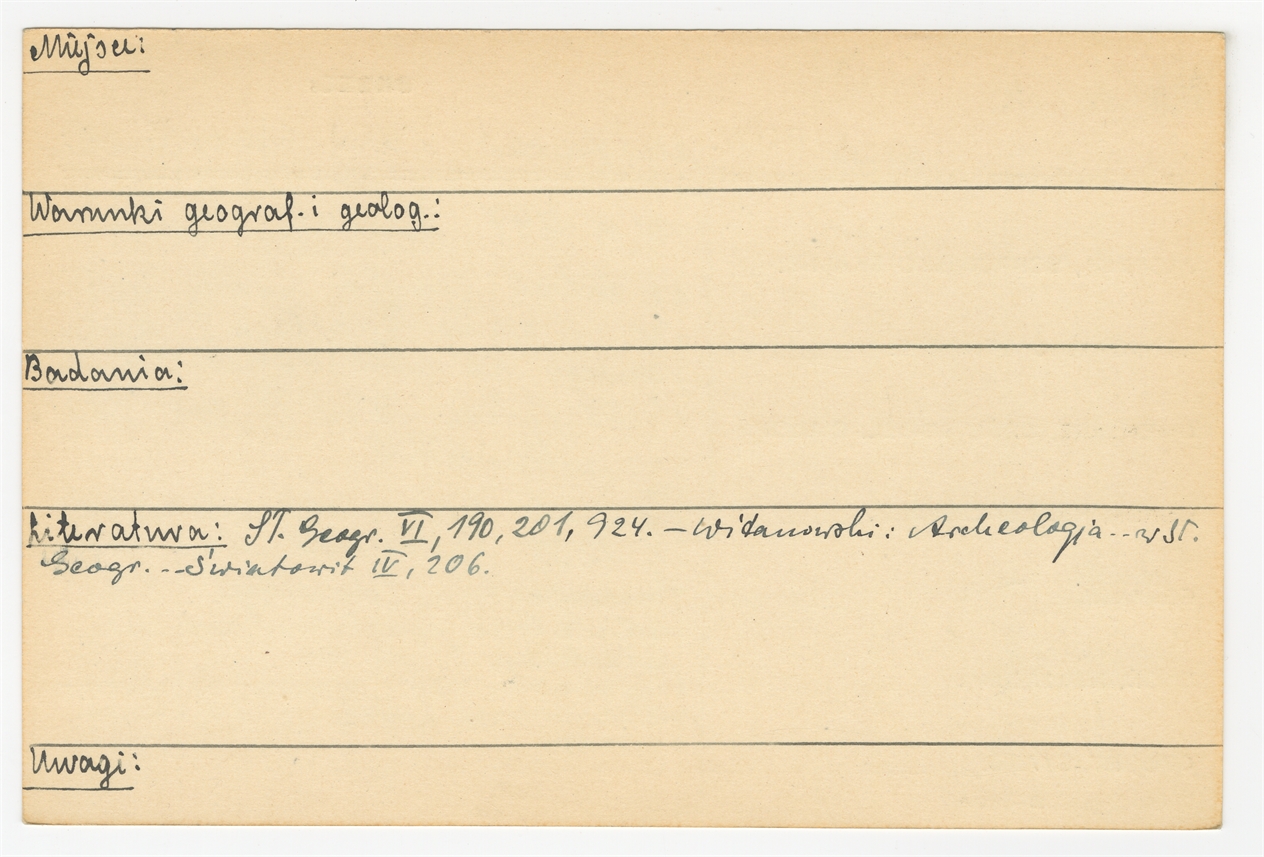 Miejsce:
Warunki geograf. i geolog.:
Badania:
Literatura: Sł. Geogr. VI, 190, 201, 924. – Witanowski: Archeologja... w Sł.
Geogr. -- Światowit IV, 206.
Uwagi: